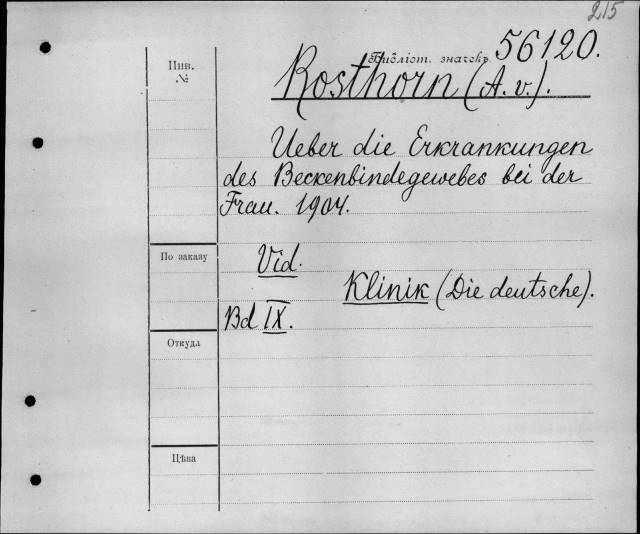 215
Библіот. значекъ 56120.
Инв.
№
Rosthorn (A. v.).
Ueber die Erkrankungen
des Beckenbindegewebes bei der
Frau. 1904.
По заказу
Vid.
Klinik (Die deutsche).
Bd IX.
Откуда
Цѣна